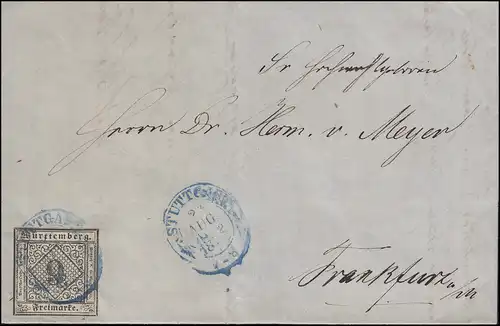 Sr Hochwohlgeboren
Herrn Dr. Herm. v. Meyer
STUTTGART
AUG
Württemberg.
9
Freimarke.
Frankfurt a/M